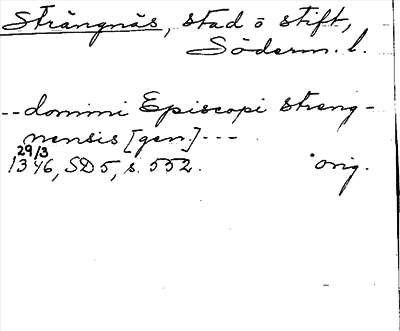 Strängnäs, stad o stift,
Söderm. l.
-- domini Episcopi streng-
nensis [gen.] ---
29/3
1346, SD 5, s. 552. orig.